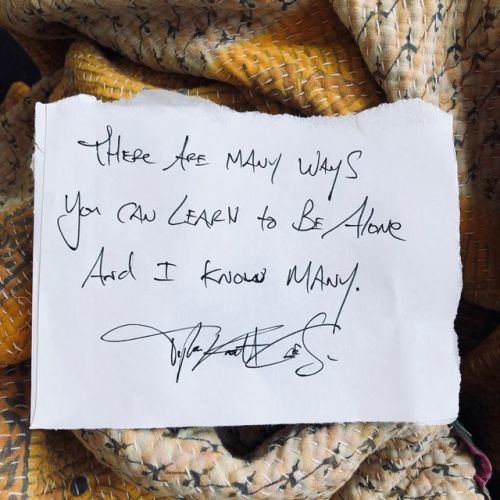 There Are Many Ways
You can Learn to Be Alone
And I know Many.